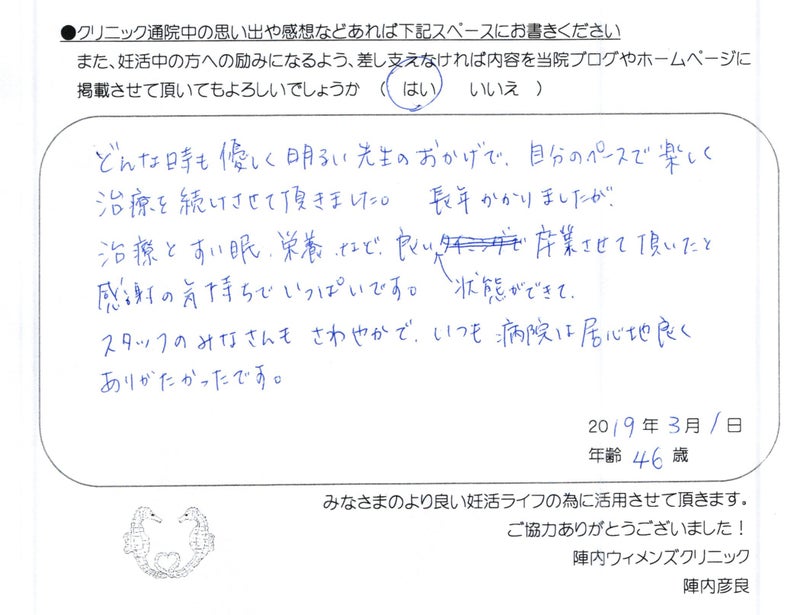 ●クリニック通院中の思い出や感想などあれば下記スペースにお書きください
また、妊活中の方への励みになるよう、差し支えなければ内容を当院ブログやホームページに
掲載させて頂いてもよろしいでしょうか （ はい いいえ ）
どんな時も優しく明るい先生のおかげで、自分のペースで楽しく
治療を続けさせて頂きました。 長年かかりましたが、
治療とすい眠、栄養、など、良いタイミングで卒業させて頂いたと
感謝の気持ちでいっぱいです。 状態ができて、
スタッフのみなさんも さわやかで、いつも病院は居心地良く
ありがたかったです。
2019年3月1日
年齢 46 歳
みなさまのより良い妊活ライフの為に活用させて頂きます。
ご協力ありがとうございました！
陣内ウィメンズクリニック
陣内彦良